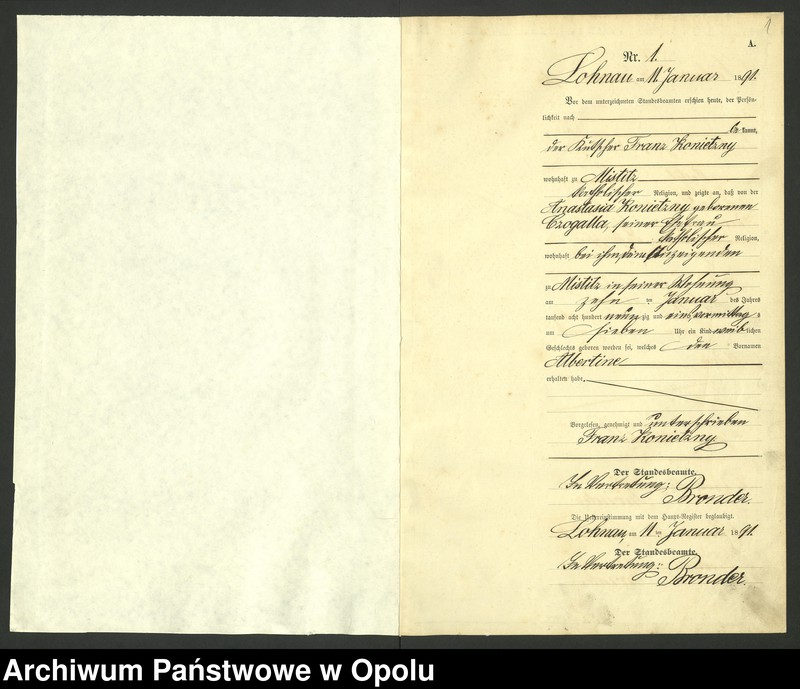 1
A.
Nr. 1.
Lohnau am 11. Januar 1891.
Vor dem unterzeichneten Standesbeamten erschien heute, der Persön-
lichkeit nach
be kannt,
der Kutscher Franz Konietzny
wohnhaft zu Mistitz
katholischer Religion, und zeigte an, daß von der
Anastasia Konietzny geborenen
Czogalla, seiner Ehefrau
katholischer Religion,
wohnhaft bei ihm, dem Anzeigenden
zu Mistitz in seiner Wohnung
am zehn ten Januar des Jahres
tausend acht hundert neun zig und eins, vormittag s
um sieben Uhr ein Kind weib lichen
Geschlechts geboren worden sei, welches den Vornamen
Albertine
erhalten habe.
Vorgelesen, genehmigt und unterschrieben
Franz Konietzny
Der Standesbeamte.
In Vertretung: Bronder.
Die Uebereinstimmung mit dem Haupt-Register beglaubigt.
Lohnau, am 11 ten Januar 1891.
Der Standesbeamte.
In Vertretung: Bronder.
Archiwum Państwowe w Opolu